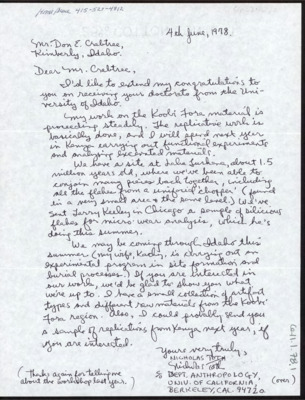 4th June, 1978.
Mr. Don E. Crabtree,
Kimberly, Idaho.
Dear Mr. Crabtree,
I'd like to extend my congratulations to
you on receiving your doctorate from the Uni-
versity of Idaho.
My work on the Koobi Fora material is
proceeding steadily. The replicative work is
basically done, and I will spend next year
in Kenya carrying out functional experiments
and analyzing excavated material.
We have a site at, about 1.5
million years old, where we've been able to
conjoin many pieces back together, including
all the flakes from a unifacial "chopper" (found
in a very small area at the same level.) We've
sent Larry Keeley in Chicago a sample of siliceous
flakes for micro-wear analysis, which he's
doing this summer.
We may be coming through Idaho this
summer (my wife, Kathy, is carrying out an
experimental program in site formation and
burial processes.) If you are interested in
our work, we'd be glad to show you what
we're up to. I have a small collection of artifact
types and different raw materials from the Koobi
Fora region. Also, I could probably send you
a sample of replications from Kenya next year, if
you are interested.
Yours very truly,
NICHOLAS TOTH
Nicholas Toth
DEPT. ANTHROPOLOGY,
UNIV. OF CALIFORNIA
BERKELEY, CAL. 94720
(Thanks again for telling me
about the workshop last year.)
(over)